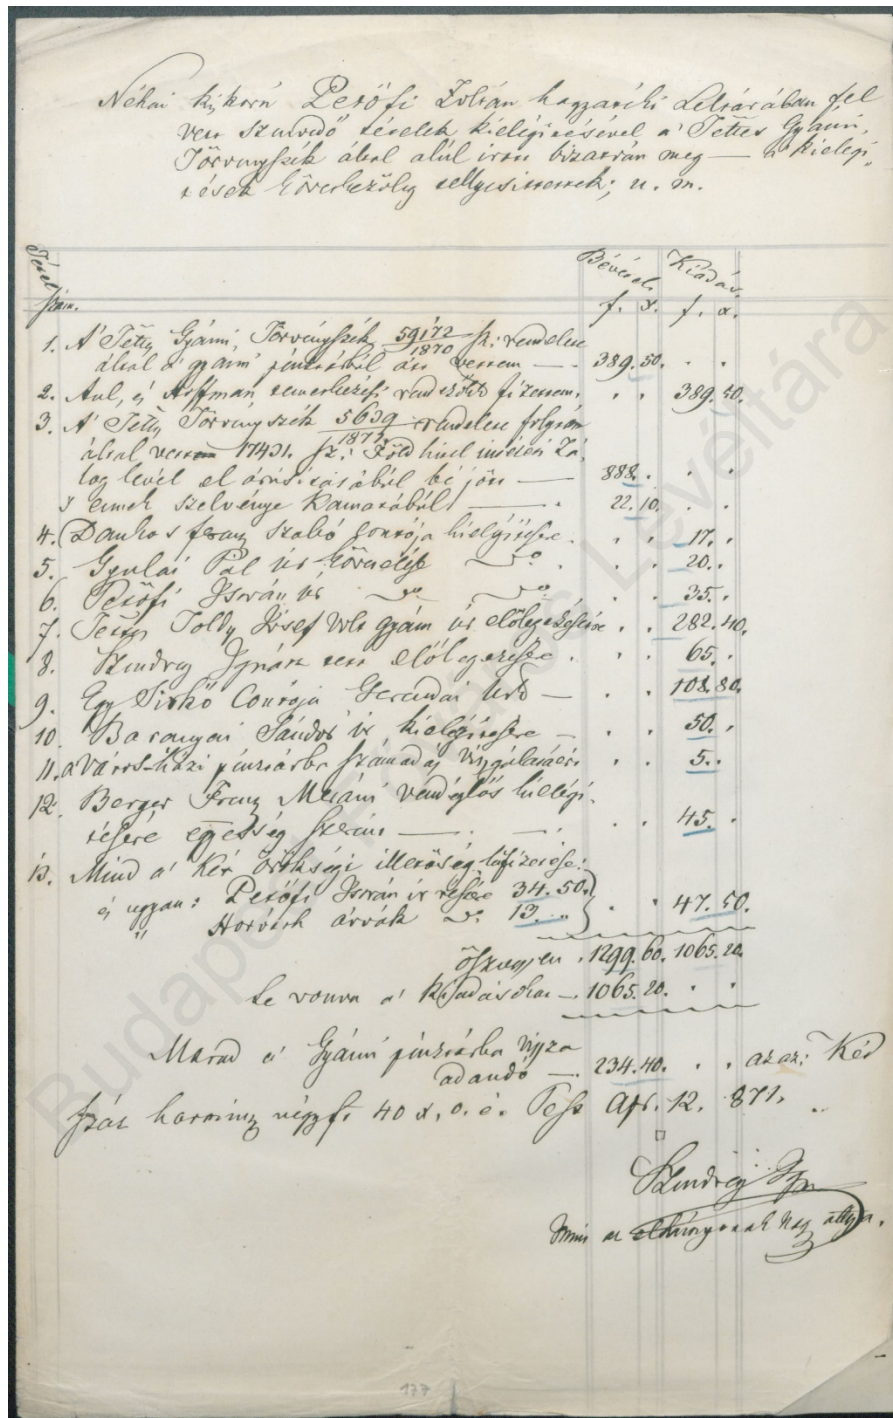 Néhai kiskorú Petőfi Zoltán hagyatéki Leltárában fel
vett szenvedő tételek kielégitésével a' Tettes Gyámi,
Törvényszék által alúl irott bizatván meg — a' kielégi
tések következőleg tellyesittettek; u. m.
Tétel Szám. Bévétel Kiádás
f. x. f. x.
1. A' Tettes Gyámi, Törvényszék 59172/1870 sz: rendelete
által a' gyámi pénztárból ált vettem — 389.50. . .
2. Aul, és Hoffman temetkezési rendezőkk fizettem. . . 389.50.
3. A' Tettes Törvényszék 5639/1871 rendelete folytán
által vettem 17431. sz: Föld hitel intézeti Zá,
log levél el árúsitásából bé jött — 888. . . .
s ennek szelvénye Kamatából — . 22.10. . .
4. Dankos ferenz szabó contója kielégitésére . . . 17. .
5. Gyulai Pál úr követelése do . . 20. .
6. Petőfi István úr do do . . 35. .
7. Tettes Toldy József volt gyám úr előlegezésére . . 282.40.
8. Szendrey Ignátz tett előlegezésére . . . 65. .
9. Egy Sirkő Contója Gerendai Úrk — . . 108.80.
10. Baranyai Sándor úr kielégitésére — . . 50. .
11. a Város-házi pénztárba számadás vizsgálatáért . . 5. .
12. Berger Ferenz Meráni vendéglős kielégi,
tésére egyesség szerint — . — . . . 45. .
13. Mind a' Két örökségi illetőség lefizetése:
és ugyan: Petőfi István úr részére 34.50.
" Horváth árvák do. 13. „ } . . 47.50.
öszvegyen . 1299.60. 1065.20.
Le vonva a' Kiadásokat — . 1065.20. . .
Marad a' Gyámi pénztárba vissza
adandó — . 234.40. . . azaz: Két
száz harmincz négy fr 40 x, o. é. Pest Apr. 12. 871.
Szendrey Ign
mint az elhúnynak Nagy attya.
177
Budapest Főváros Levéltára